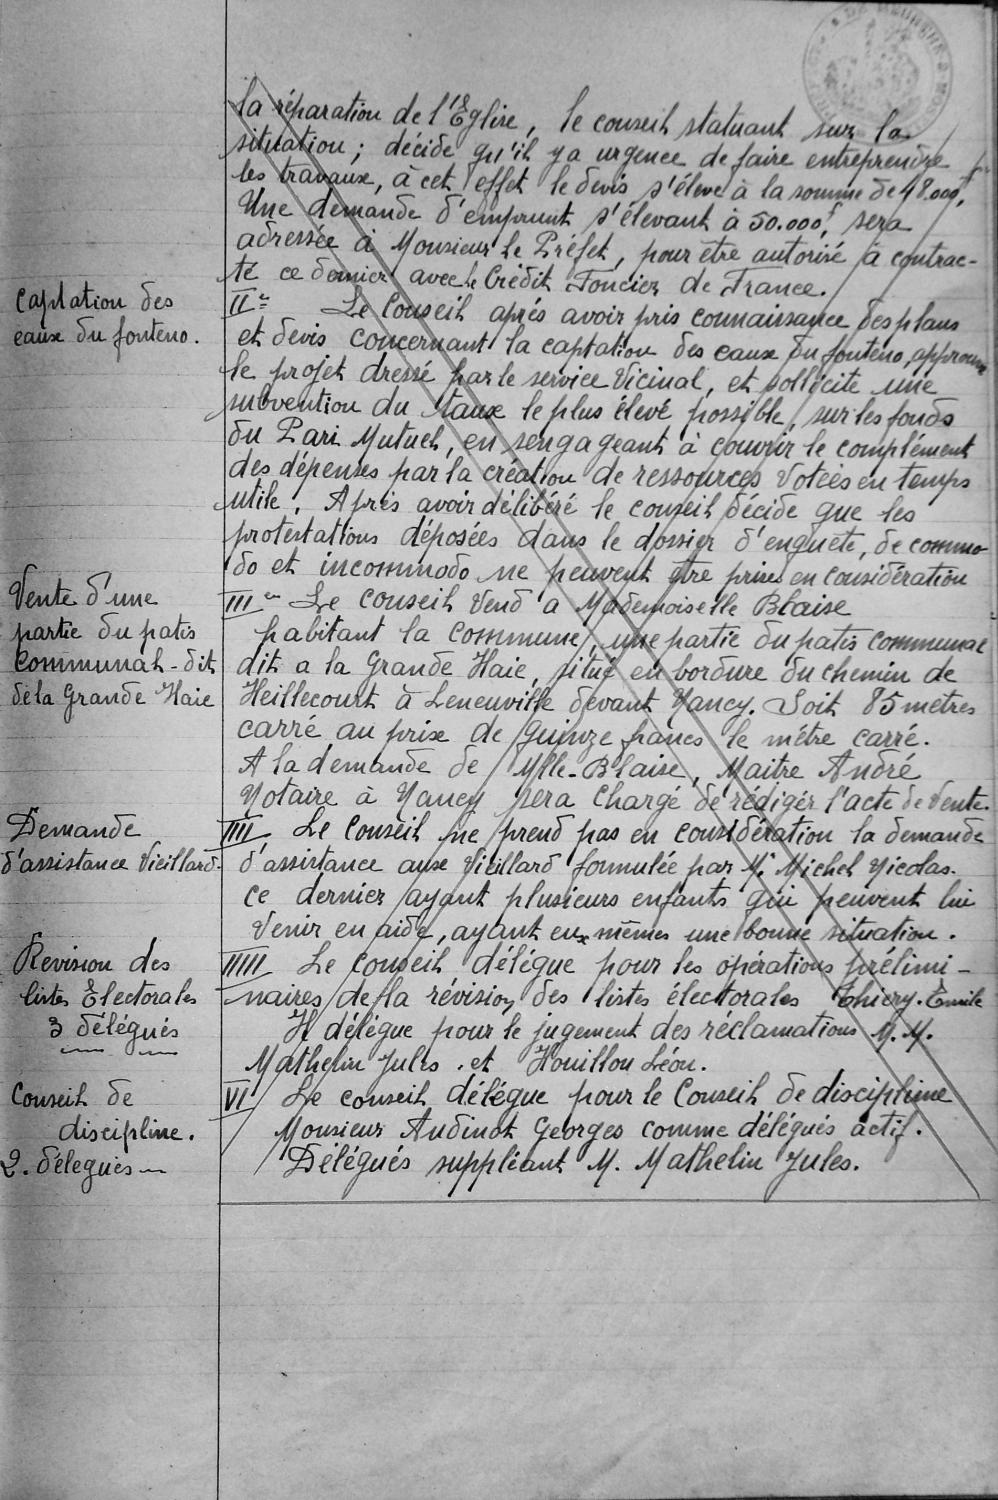 la réparation de l'Eglise, le conseil statuant sur la
situation; décide qu'il y a urgence de faire entreprendre
les travaux, à cet effet le devis s'éleve à la somme de 48.000f,
Une demande d'emprunt s'élevant à 50.000f, sera
adressée à Monsieur le Préfet, pour être autorisé à contrac-
té ce dernier avec le Crédit Foncier de France.
Captation des
eaux du fonteno.
IIe Le Conseil aprés avoir pris connaissance des plans
et devis concernant la captation des eaux du fonteno, approuve
le projet dressé par le service Vicinal, et sollicite une
subvention du taux le plus élevé possible, sur les fonds
du Pari Mutuel, en sengageant à couvrir le complément
des dépenses par la création de ressources Votées en temps
utile. Aprés avoir délibéré le conseil décide que les
protestations déposées dans le dossier d'enquete, de commo-
do et incommodo ne peuvent être prises en considération
Vente d'une
partie du patis
Communal-dit
de la Grande Haie
IIIe Le conseil Vend a Mademoiselle Blaise
habitant la commune, une partie du patis communal
dit a la Grande Haie, situé en bordure du chemin de
Heillecourt à Leneuville devant Nancy. Soit 85 mètres
carré au prix de quinze francs le métre carré.
A la demande de Mlle-Blaise, Maitre André
Notaire à Nancy sera chargé de rédigér l'acte de Vente.
Demande
d'assistance Vieillard-
IIII Le Conseil ne prend pas en considération la demande
d'assistance aux Vieillard formulée par Mr Michel Nicolas.
ce dernier ayant plusieurs enfants qui peuvent lui
Venir en aide, ayant eux mêmes une bonne situation.
Revision des
listes Electorales
3 délégués
IIIII Le conseil délégue pour les opérations prélimi-
naires de la révision des listes électorales Thiery. Emile
Il délègue pour le jugement des réclamations M.M.
Mathelin Jules. et Houillon Léon.
Conseil de
discipline.
2. délegués
VI Le conseil délégue pour le Conseil de discipline
Monsieur Audinot Georges comme délégués actif.
Délégués suppléant M. Mathelin Jules.